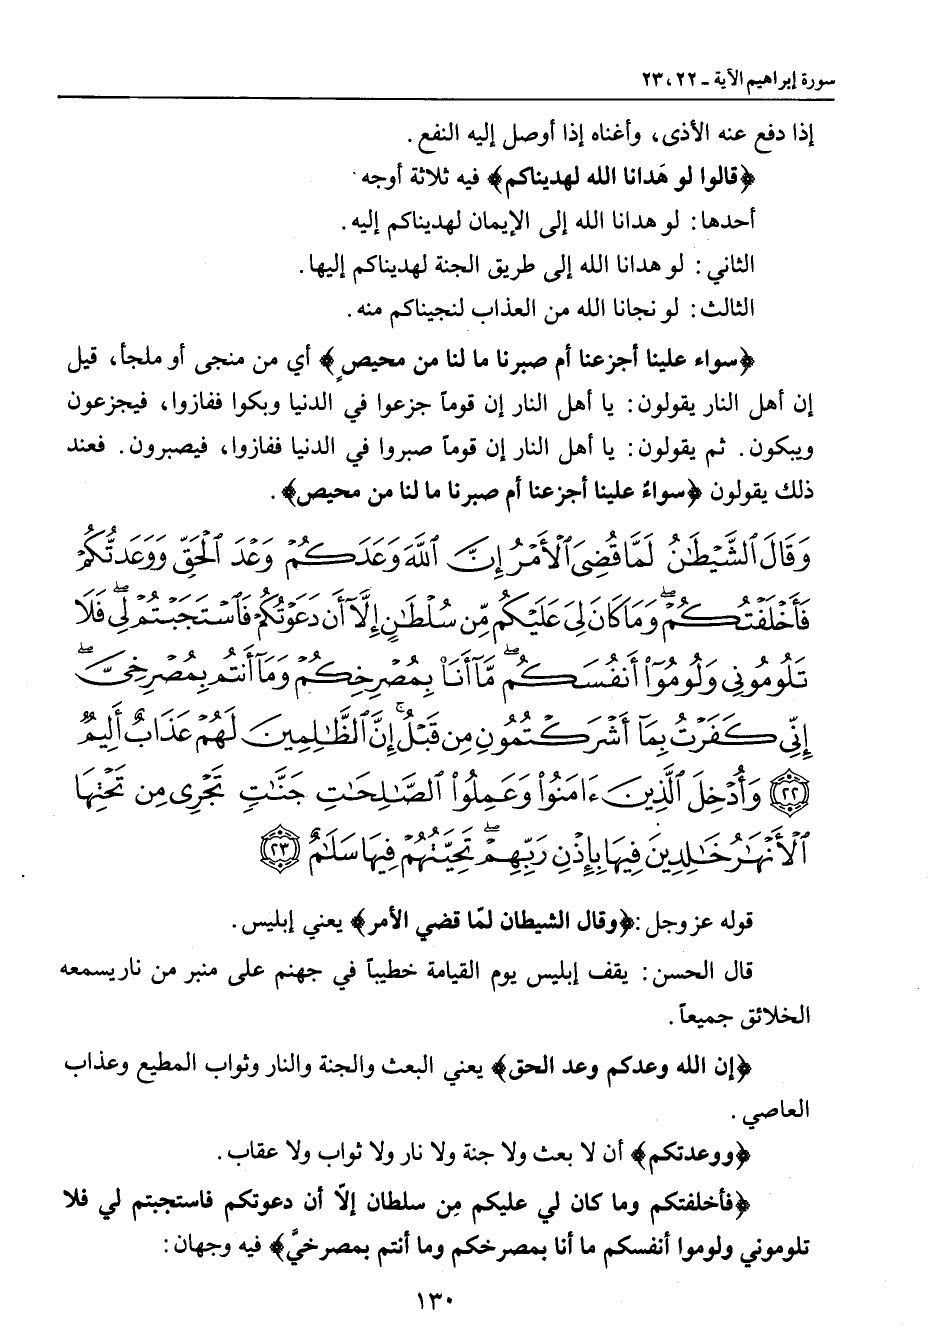 سورة إبراهيم الآية ـ ٢٢، ٢٣
إذا دفع عنه الأذى، وأغناه إذا أوصل إليه النفع.
﴿قالوا لو هَدانا الله لهديناكم﴾ فيه ثلاثة أوجه
أحدها: لو هدانا الله إلى الإيمان لهديناكم إليه.
الثاني: لو هدانا الله إلى طريق الجنة لهديناكم إليها.
الثالث: لو نجانا الله من العذاب لنجيناكم منه.
﴿سواء علينا أجزعنا أم صبرنا ما لنا من محيصٍ﴾ أي من منجى أو ملجأ، قيل
إن أهل النار يقولون: يا أهل النار إن قوماً جزعوا في الدنيا وبكوا ففازوا، فيجزعون
ويبكون. ثم يقولون: يا أهل النار إن قوماً صبروا في الدنيا ففازوا، فيصبرون. فعند
ذلك يقولون ﴿سواءٌ علينا أجزعنا أم صبرنا ما لنا من محيص﴾.
وَقَالَ ٱلشَّيْطَٰنُ لَمَّا قُضِىَ ٱلْأَمْرُ إِنَّ ٱللَّهَ وَعَدَكُمْ وَعْدَ ٱلْحَقِّ وَوَعَدتُّكُمْ
فَأَخْلَفْتُكُمْ ۖ وَمَا كَانَ لِىَ عَلَيْكُم مِّن سُلْطَٰنٍ إِلَّآ أَن دَعَوْتُكُمْ فَٱسْتَجَبْتُمْ لِى ۖ فَلَا
تَلُومُونِى وَلُومُوٓا۟ أَنفُسَكُم ۖ مَّآ أَنَا۠ بِمُصْرِخِكُمْ وَمَآ أَنتُم بِمُصْرِخِىَّ ۖ
إِنِّى كَفَرْتُ بِمَآ أَشْرَكْتُمُونِ مِن قَبْلُ ۗ إِنَّ ٱلظَّٰلِمِينَ لَهُمْ عَذَابٌ أَلِيمٌ
﴿٢٢﴾ وَأُدْخِلَ ٱلَّذِينَ ءَامَنُوا۟ وَعَمِلُوا۟ ٱلصَّٰلِحَٰتِ جَنَّٰتٍ تَجْرِى مِن تَحْتِهَا
ٱلْأَنْهَٰرُ خَٰلِدِينَ فِيهَا بِإِذْنِ رَبِّهِمْ ۖ تَحِيَّتُهُمْ فِيهَا سَلَٰمٌ ﴿٢٣﴾
قوله عز وجل: ﴿وقال الشيطان لمّا قضي الأمر﴾ يعني إبليس.
قال الحسن: يقف إبليس يوم القيامة خطيباً في جهنم على منبر من نار يسمعه
الخلائق جميعاً.
﴿إن الله وعدكم وعد الحق﴾ يعني البعث والجنة والنار وثواب المطيع وعذاب
العاصي.
﴿ووعدتكم﴾ أن لا بعث ولا جنة ولا نار ولا ثواب ولا عقاب.
﴿فأخلفتكم وما كان لي عليكم مِن سلطان إلاّ أن دعوتكم فاستجبتم لي فلا
تلوموني ولوموا أنفسكم ما أنا بمصرخكم وما أنتم بمصرخيَّ﴾ فيه وجهان:
١٣٠